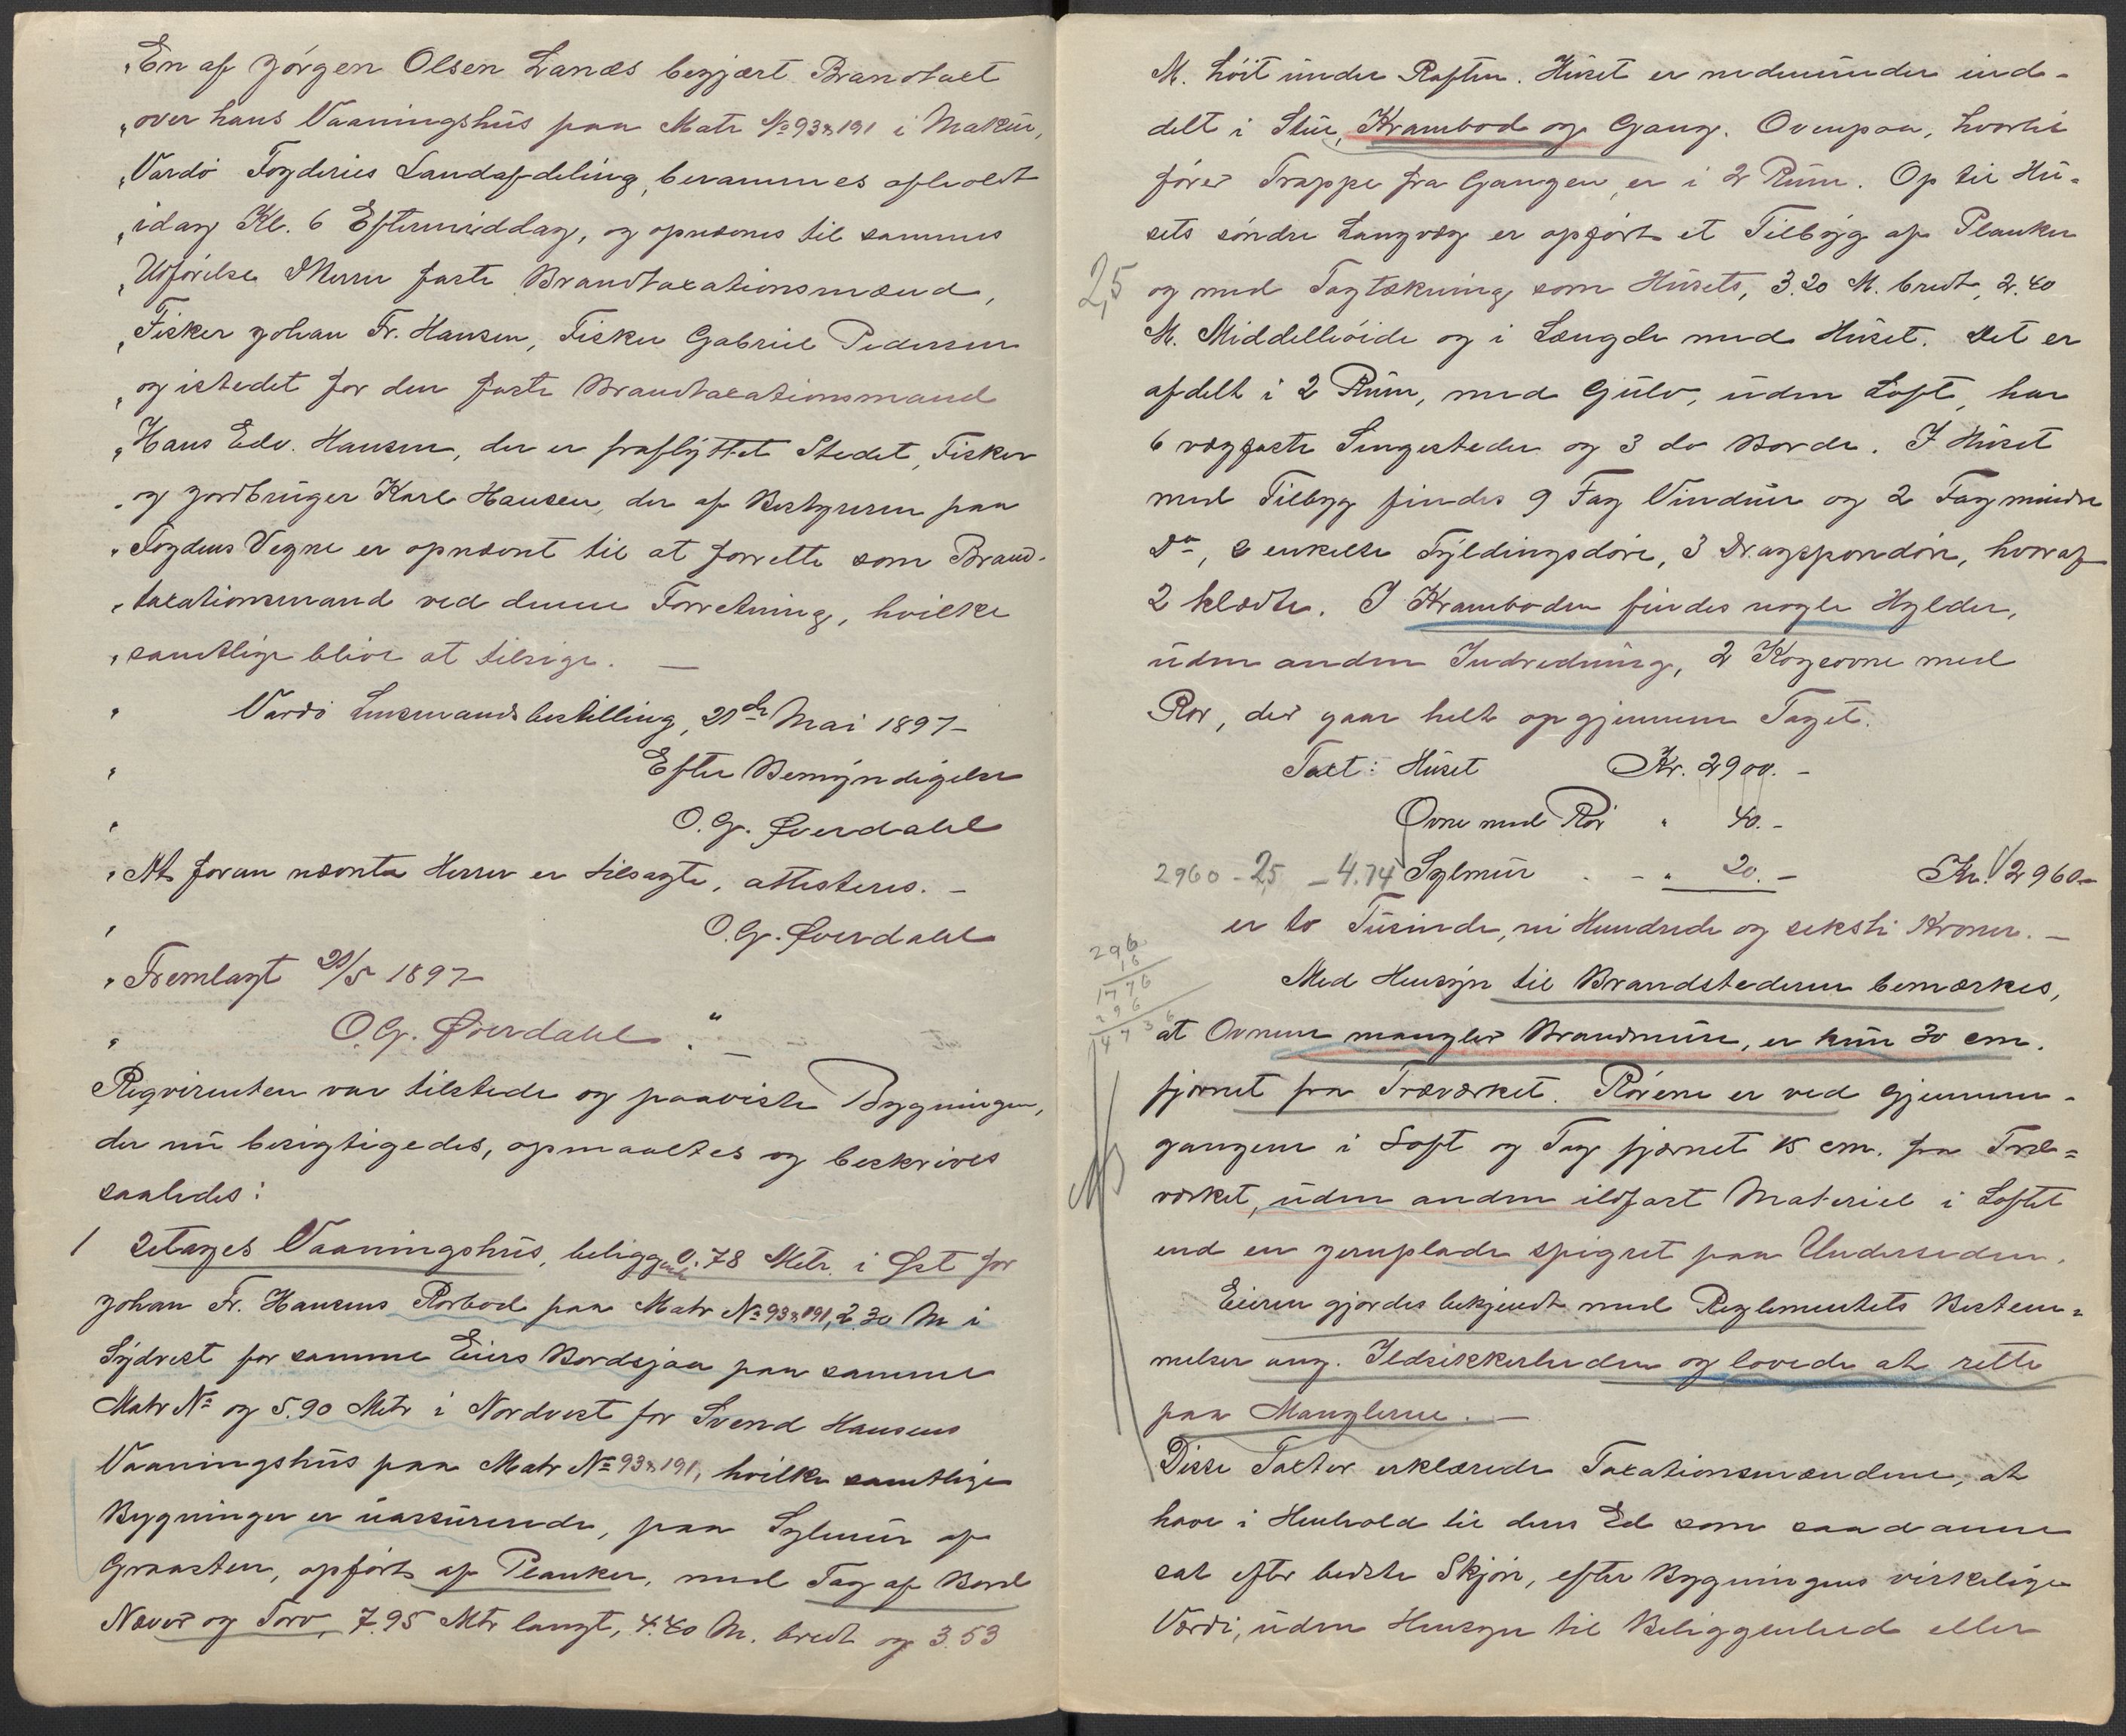 „En af Jörgen Olsen Lanæs begjært Brandtaxt
„over hans Vaaningshus paa Matr №93 & 191 i Makur,
„Vardö Fogderies Landafdeling, berammes afholdt
„idag Kl. 6 Eftermiddag, og opnævnes til sammes
„Udförelse D'Herrer faste Brandtaxationsmænd,
„Fisker Johan Fr. Hansen, Fisker Gabriel Pedersen
„og istedet for den faste Brandtaxationsmand
„Hans Edv. Hansen, der er fraflyttet Stedet, Fisker
„og Jordbruger Karl Hansen, der af Bestyreren paa
„Fogdens Vegne er opnævnt til at forrette som Brand-
„taxationsmand ved denne Forretning, hvilke
„samtlige blive at tilsige. —
„ Vardö Lensmandsbestilling, 21de Mai 1897 –
„ Efter Bemyndigelse
„ O. G. Øverdahl
„At foran nævnte Herrer er tilsagte, attesteres. –
„ O. G. Øverdahl
„Fremlagt 21/5 1897 –
„ O. G. Øverdahl. “
Reqvirenten var tilstede og paaviste Bygningen,
der nu besigtigedes, opmaaltes og beskrives
saaledes:
1 2etages Vaaningshus, beliggende 0.78 Metr. i Øst for
Johan Fr. Hansens Rorbod paa Matr №93 & 191, 2.30 M i
Sydvest for samme Eiers Bordsjaa paa samme
Matr № og 5.90 Metr i Nordvest for Svend Hansens
Vaaningshus paa Matr №93 & 191, hvilke samtlige
Bygninger er uassurerede, paa Sylmur af
Graasten, opfört af Planker, med Tag af Bord
Næver og Torv, 7.95 Mtr langt, 4.40 M. bredt og 3.53
M. höit under Raften. Huset er nedenunder ind-
delt i Stue, Krambod og Gang. Ovenpaa, hvortil
förer Trappe fra Gangen, er i 2 Rum. Op til Hu-
sets söndre Langvæg er opfört et Tilbyg af Planker
2,5 og med Tagtækning som Husets, 3.20 M. bredt, 2.40
M. Middelhöide og i Længde med Huset. Det er
afdelt i 2 Rum, med Gulv, uden Loft, har
6 vægfaste Sengesteder og 3 do Borde. I Huset
med Tilbyg findes 9 Fag Vinduer og 2 Fag mindre
Do, 2 enkelte Fyldingsdöre, 3 Dragspondöre, hvoraf
2 klædte. I Kramboden findes nogle Hylder,
uden anden Indredning, 2 Kogeovne med
Rör, der gaar helt op gjennem Taget.
Taxt: Huset Kr. 2900. –
Ovne med Rör „ 40. –
2960 – 25 – 4.74 Sylmur - - „ 20. – Kr. 2960 –
er to Tusinde, ni Hundrede og seksti Kroner. —
296
16
1776
296
4736
Med Hensyn til Brandstederne bemærkes,
at Ovnene mangler Brandmure, er kun 30 cm.
fjernet fra Træværket. Rörene er ved Gjennem-
gangene i Loft og Tag fjernet 15 cm. fra Træ-
værket, uden anden ildfast Materiel i Loftet
end en Jernplade spigret paa Undersiden.
Eieren gjordes bekjendt med Reglementets Bestem-
melser ang. Ildsikkerheden og lovede at rette
paa Manglerne. —
Disse Taxter erklærede Taxationsmændene, at
have i Henhold til deres Ed som saadanne
sat efter bedste Skjön, efter Bygningens virkelige
Værdi, uden Hensyn til Beliggenhed eller